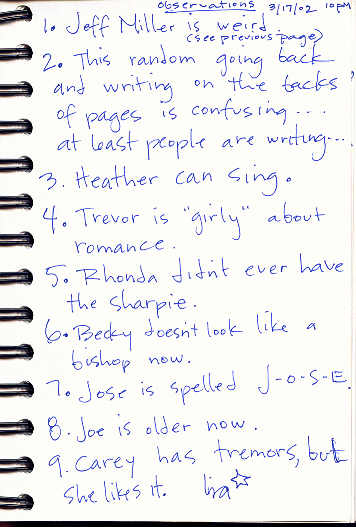 observations 3/17/02 10pm
1. Jeff Miller is weird.
(see previous page)
2. This random going back
and writing on the backs
of pages is confusing...
at least people are writing...
3. Heather can sing.
4. Trevor is "girly" about
romance.
5. Rhonda didn't ever have
the sharpie.
6. Becky doesn't look like a
bishop now.
7. Jose is spelled J-O-S-E.
8. Joe is older now.
9. Carey has tremors, but
she likes it.